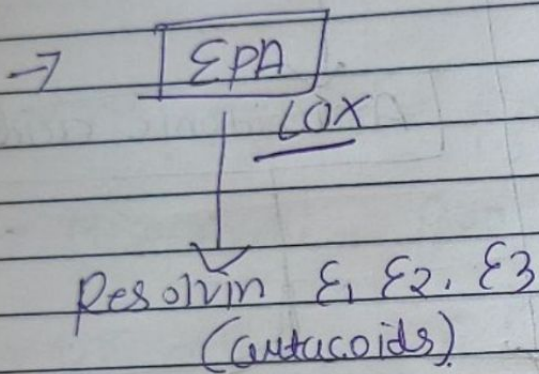 → EPA
LOX
Resolvin E1 E2, E3
(autacoids)